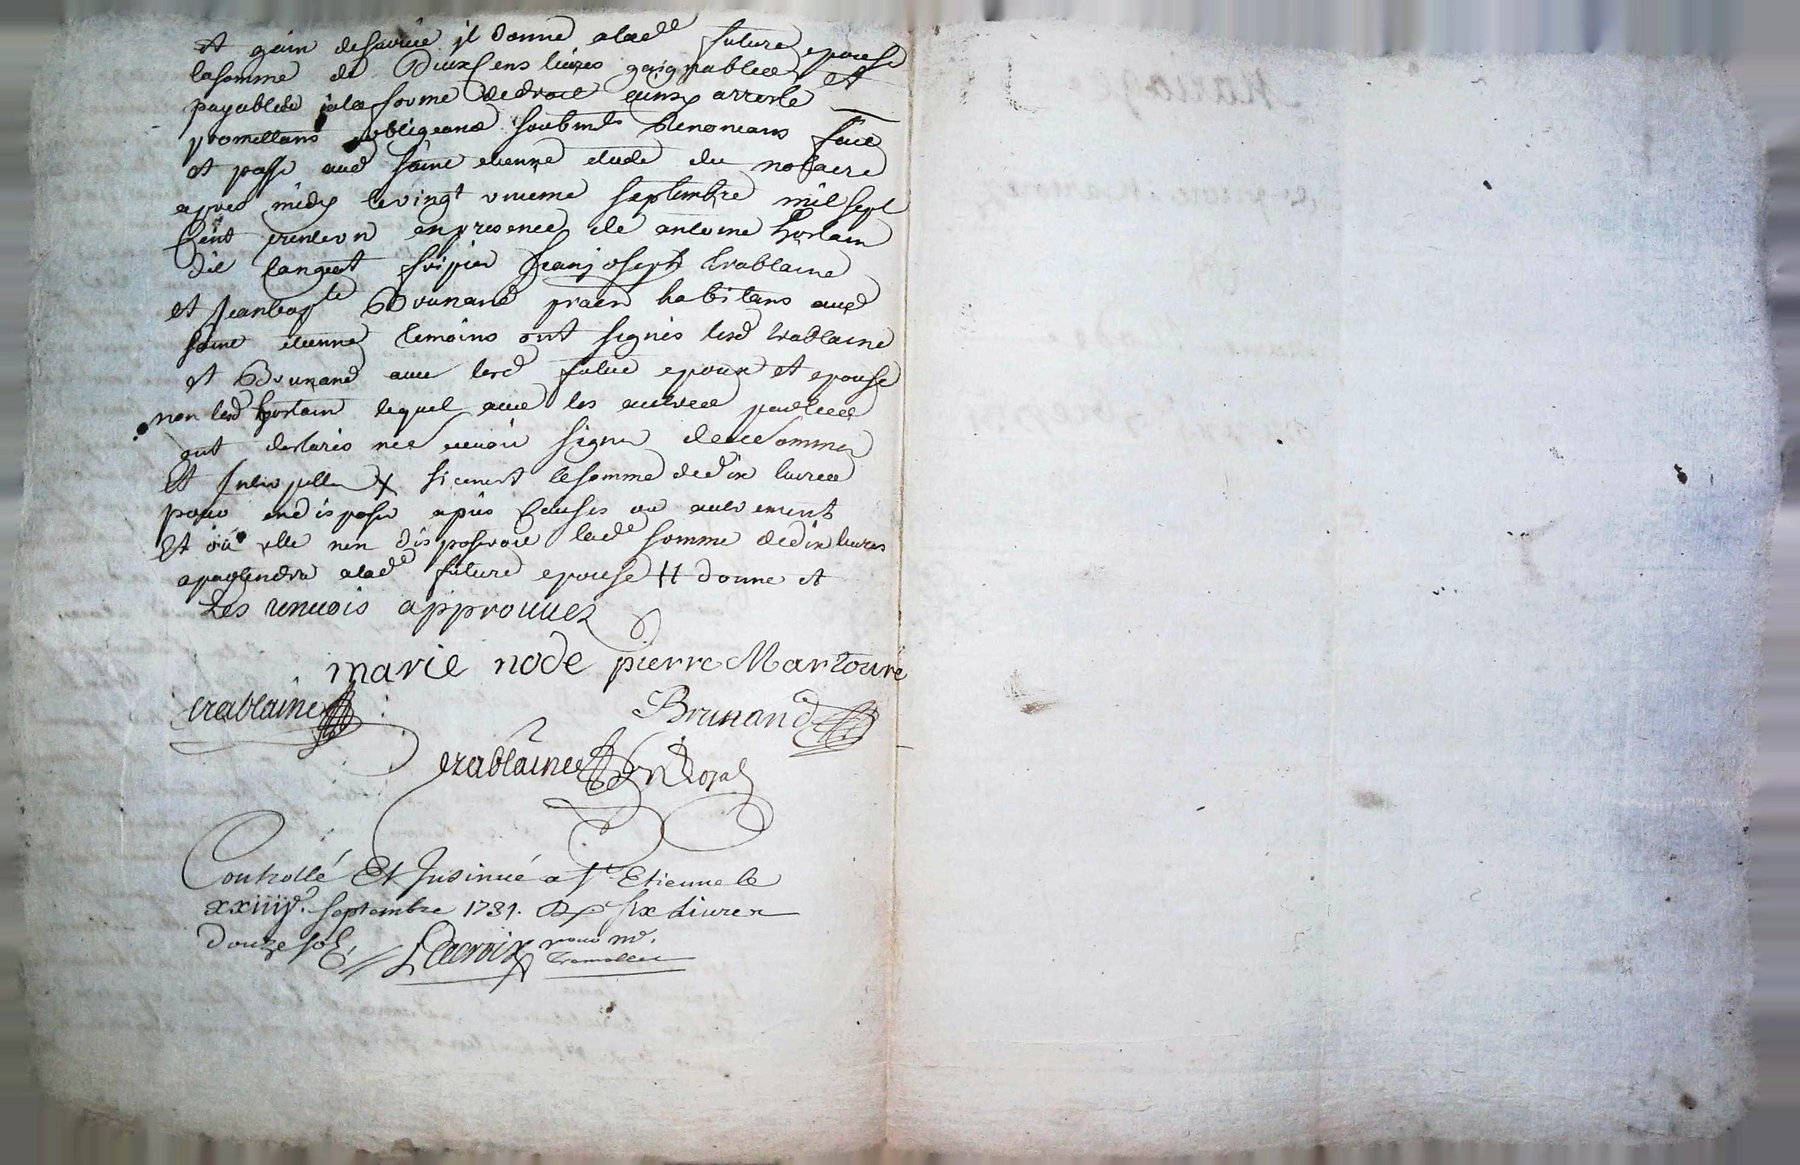 et gain de survie jl donne a lade future epouse
la somme de Deux Cens livres gaignables et
payables a la forme de droit ainsy arreste
promettans obligeans soubmts Renoncans fait
et passé aud saint etienne etude du notaire
apres midy le vingt unieme septembre mil sept
Cent trente un en presence de antoine
dit langeat fripier Jean joseph trablaine
et Jean bapte Brunand praen habitans aud
saint etienne temoins ont signés lesd trablaine
et Brunand avec lesd futur epoux et epouse
non led lequel avec les autres parties
ont declarés ne scavoir signer de ce sommés
et Interpellés X sicavoit la somme de dix livres
pour en disposer a pies Causes ou autrement
et où elle nen disposeroit lade somme de dix livres
apartiendra a lade future epouse H donne et
Les renvois approuvés
marie node pierre Martouré
trablaine Brunand
trablaine Nt Royal
Controllé Et Insinué a St Etienne le
xxiiije. septembre 1731. Rx six Livres
Douze sols Lacroix pour mr.